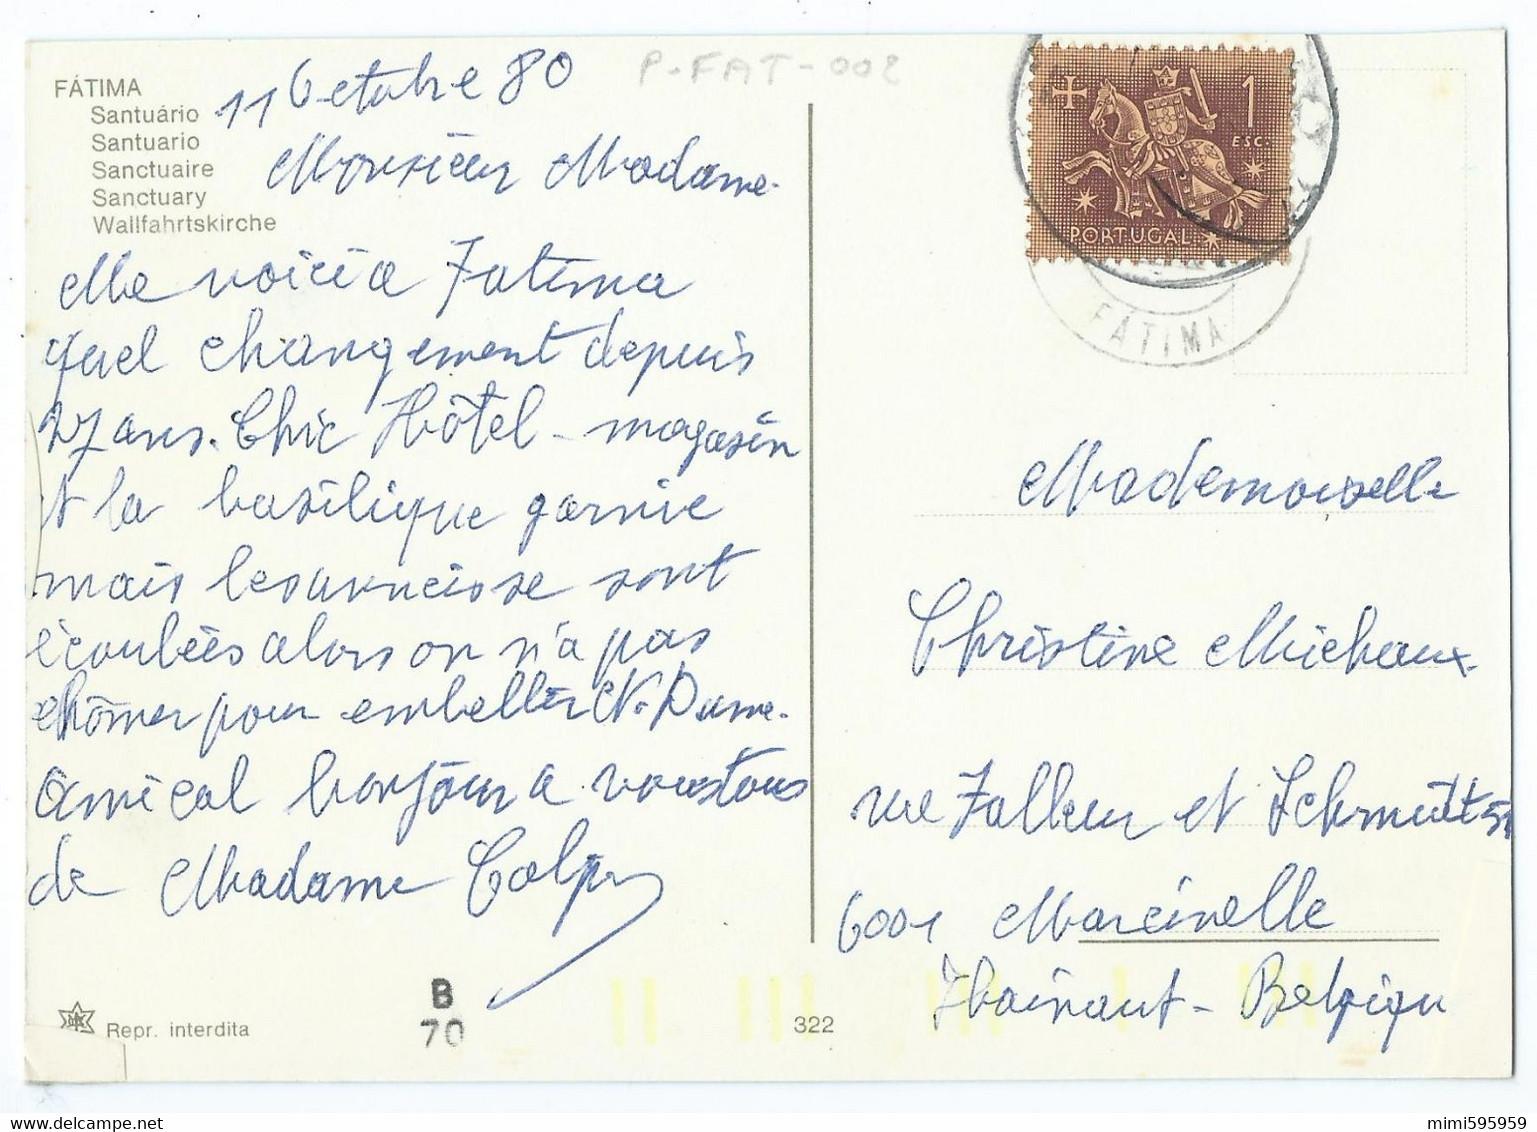 FÁTIMA
Santuário
Santuario
Sanctuaire
Sanctuary
Wallfahrtskirche
11 Octobre 80
P-FAT-002
Monsieur Madame
Me voici à Fatima
quel changement depuis
27 ans. Chic Hôtel - magasin
et la basilique garnie
mais les années se sont
écoulées alors on n'a pas
chômer pour embellir N. Dame.
amical bonjour a vous tous
de Madame
1
ESC.
PORTUGAL
FÁTIMA
Mademoiselle
Christine Michaux
rue Falleur et Schmidt 51
6001 Marcinelle
Hainaut - Belgique
Repr. interdita
B
70
322
mimi595959